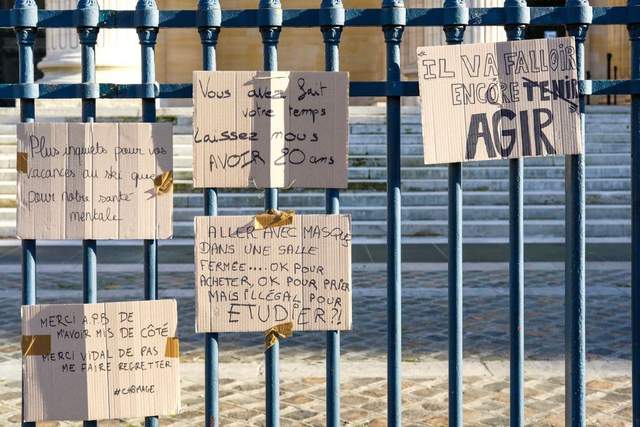 Plus inquiets pour vos
vacances au ski que
pour notre santé
mentale
Vous avez fait
votre temps
Laissez nous
AVOIR 20 ans
"IL VA FALLOIR
ENCORE TENIR
AGIR
ALLER AVEC MASQUE
DANS UNE SALLE
FERMÉE....OK POUR
ACHETER, OK POUR PRIER
MAIS ILLÉGAL POUR
ETUDIER?!
MERCI A.P.B DE
M'AVOIR MIS DE CÔTÉ
MERCI VIDAL DE PAS
ME FAIRE REGRETTER